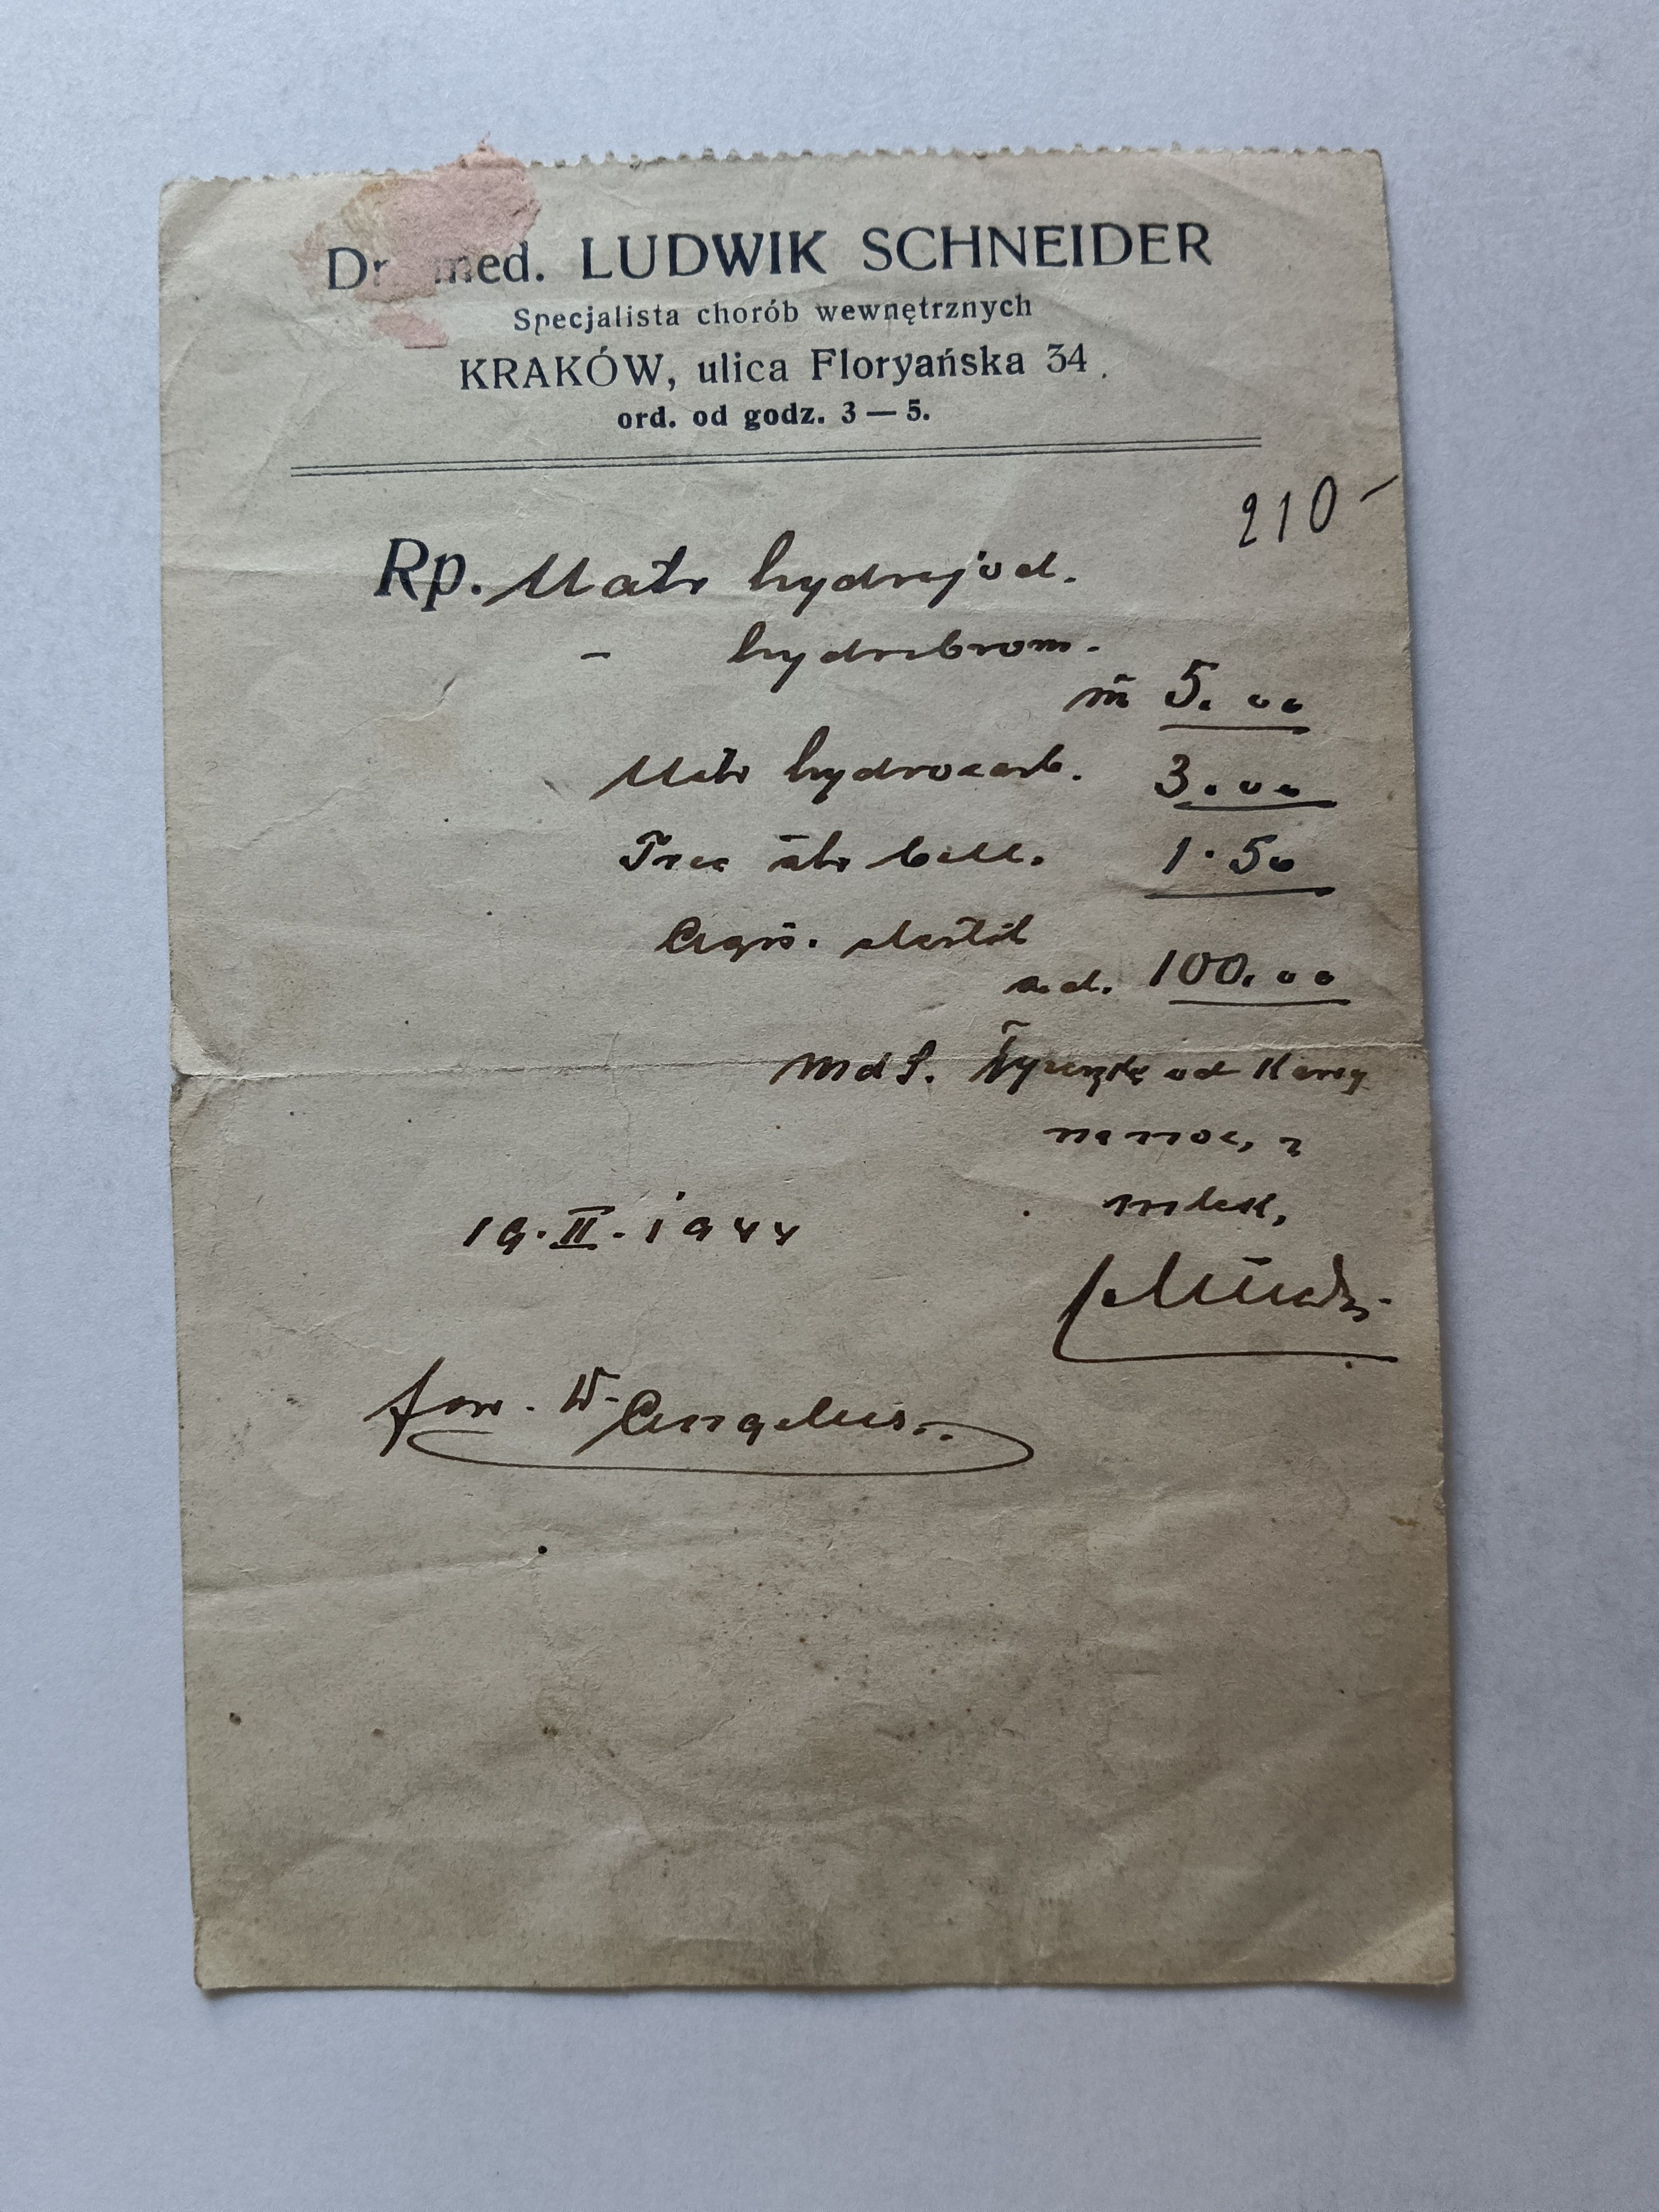 Dr. med. LUDWIK SCHNEIDER
Specjalista chorób wewnętrznych
KRAKÓW, ulica Floryańska 34.
ord. od godz. 3 — 5.
210 -
Rp. Natr hydrojod.
- hydrobrom.
āā 5.00
Natr hydrocarb. 3.00
Trae bell. 1.50
Aqu. destil
ad. 100.00
MdS. Łyżeczkę od Kawy
na noc, z
mlek,
19.II.1944
W. Angelus